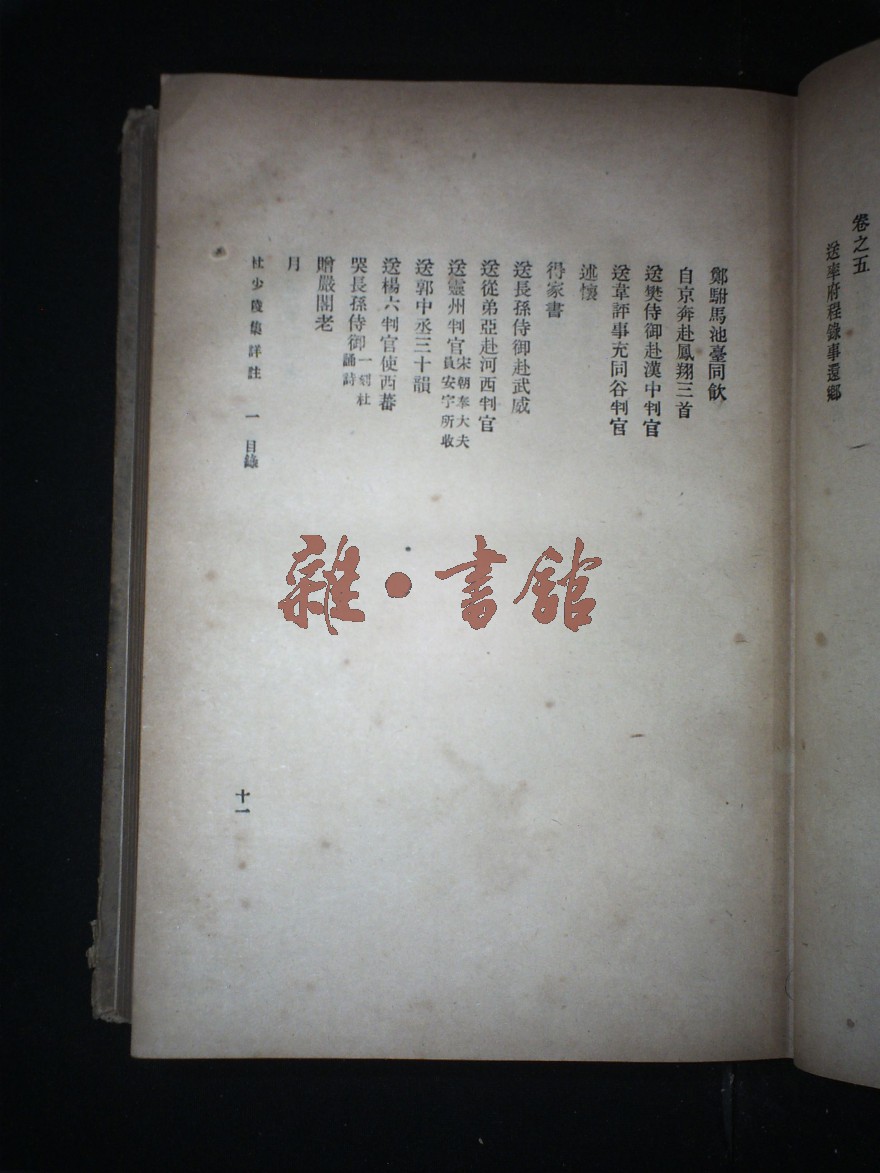 卷之五
送率府程錄事還鄉
鄭駙馬池臺同飲
自京奔赴鳳翔三首
送樊侍御赴漢中判官
送韋評事充同谷判官
述懷
得家書
送長孫侍御赴武威
送從弟亞赴河西判官
送靈州判官宋朝奉大夫員安宇所收
送郭中丞三十韻
送楊六判官使西蕃
哭長孫侍御一刻杜誦詩
贈嚴閣老
月
杜少陵集詳註 一 目錄
十一
雜·書館